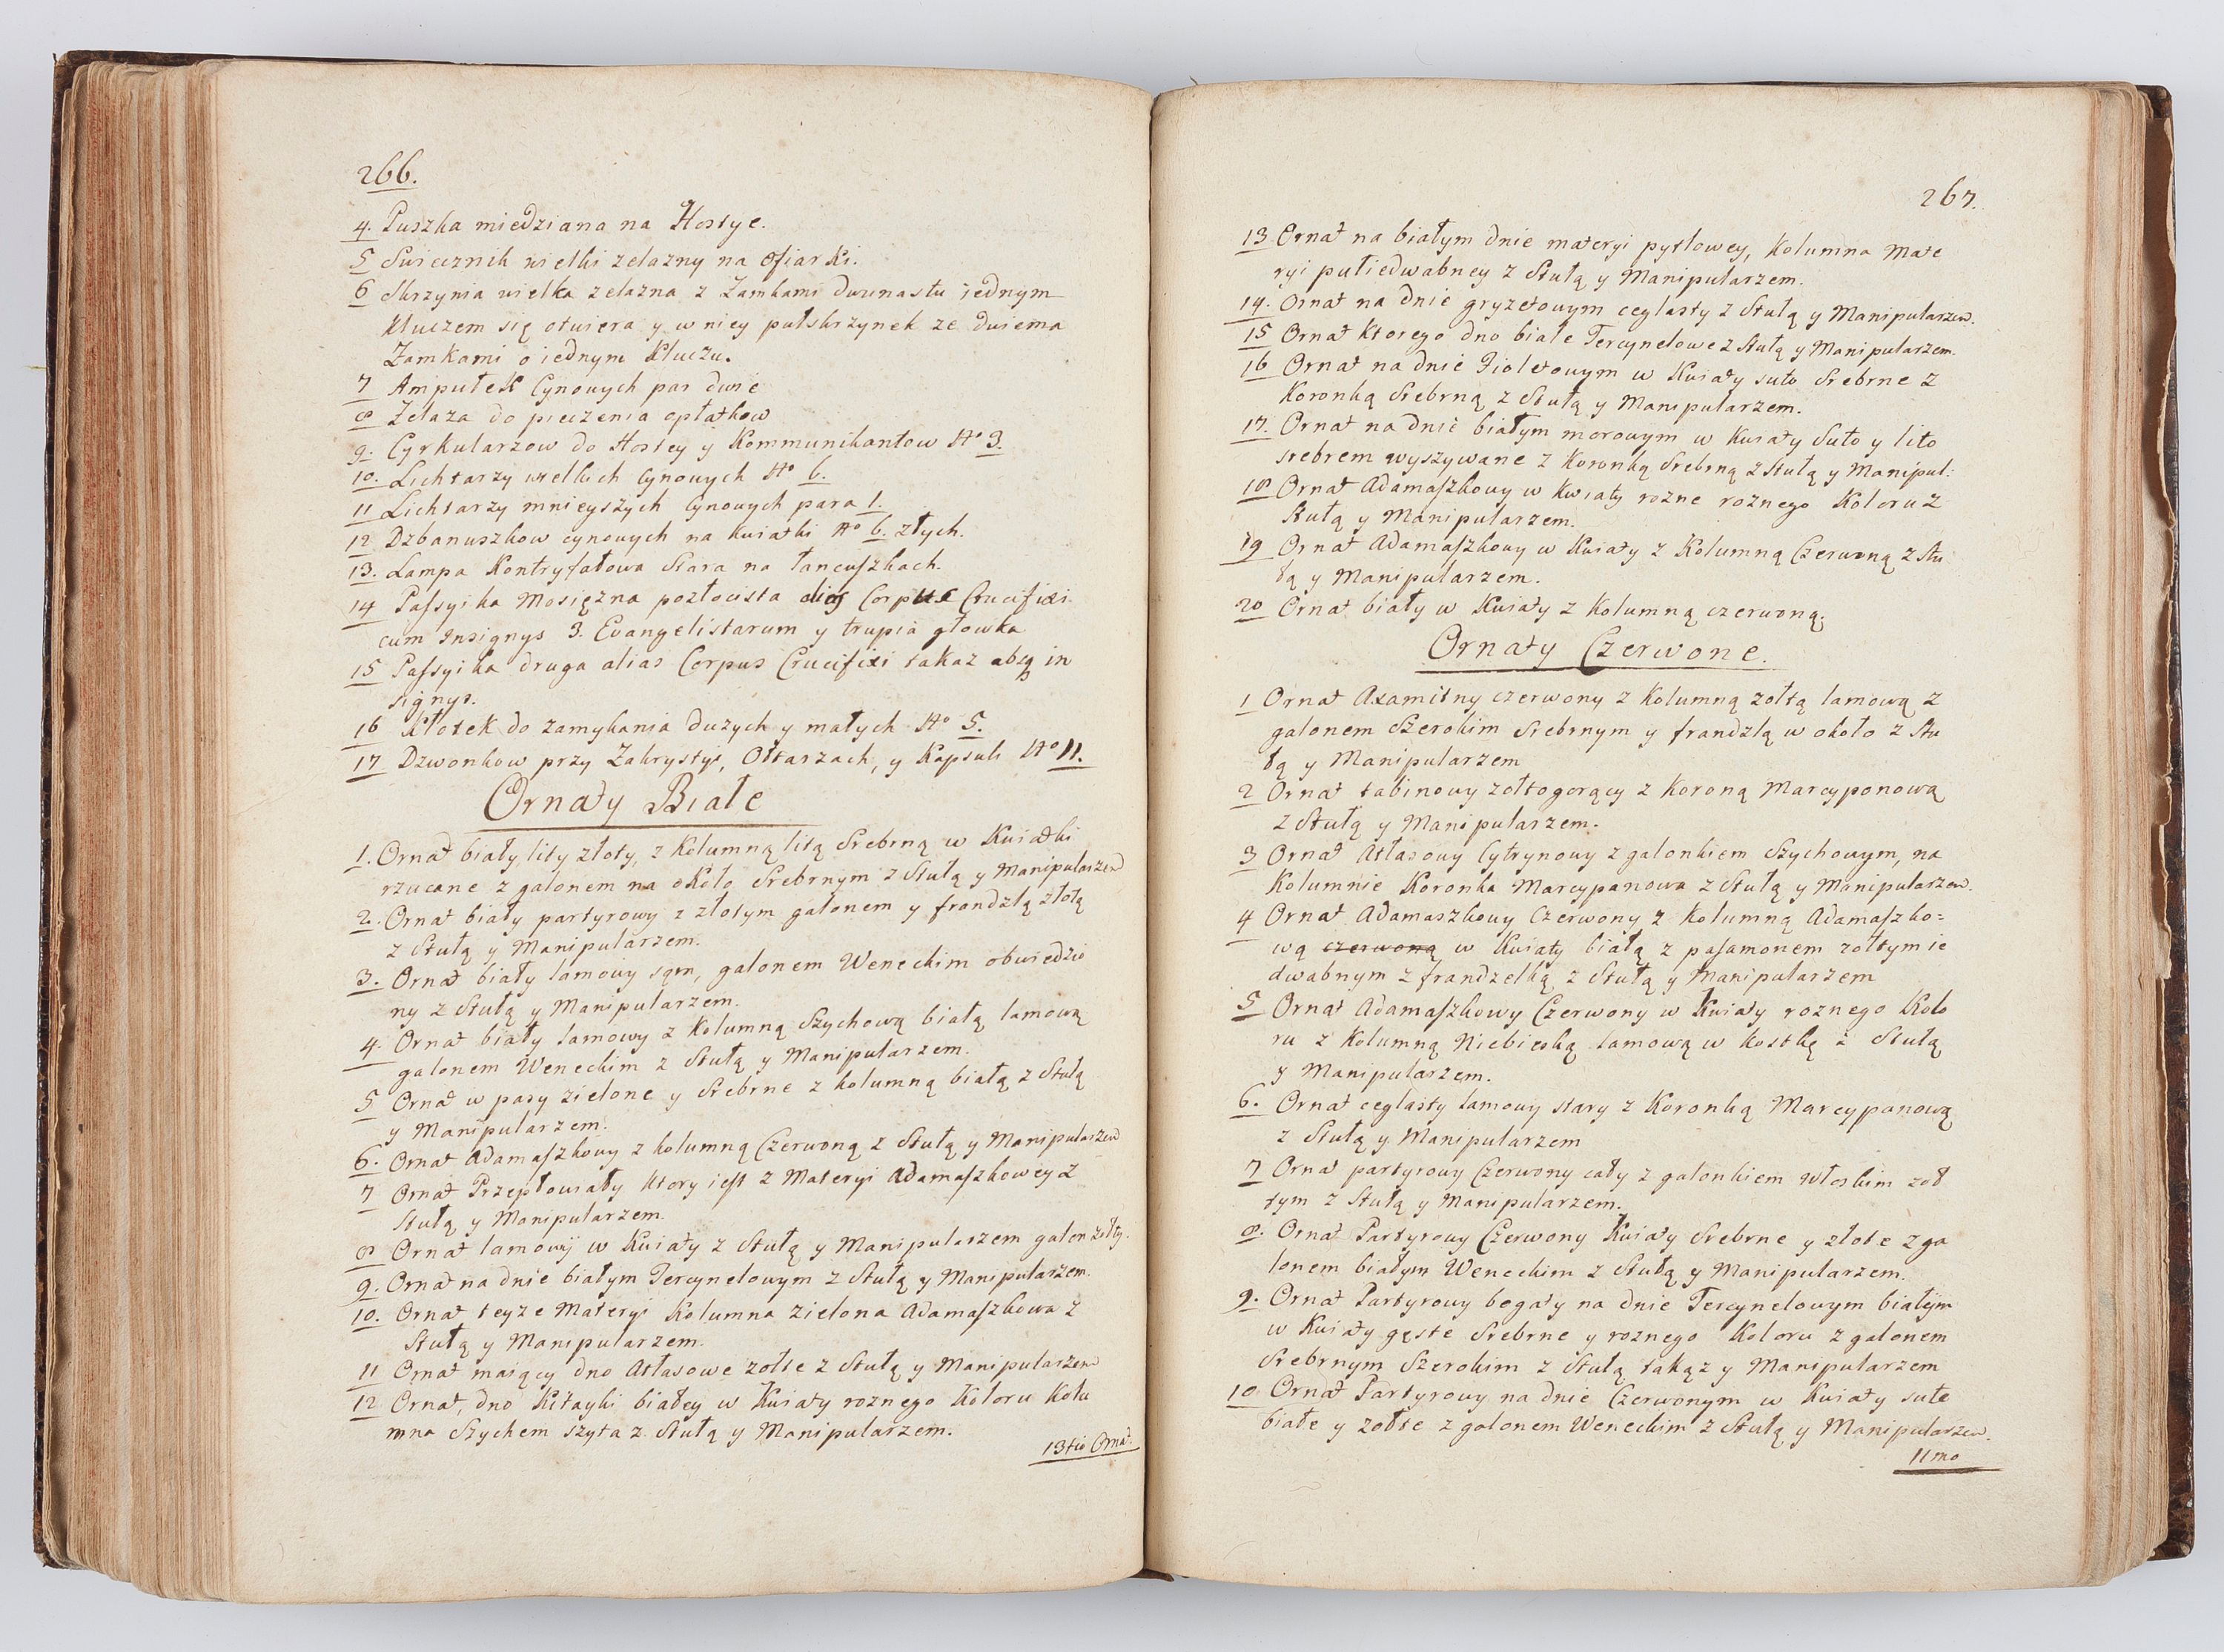 266.
4. Puszka miedziana na Hostye.
5 Swiecznik wielki zelazny na Ofiarki.
6 Skrzynia wielka zelazna z Zamkami dwunastu jednym
Kluczem się otwiera y w niey pułskrzynek ze dwiema
Zamkami o iednym Kluczu.
7 Ampułek Cynowych par dwie
8 Zelaza do pieczenia opłatkow
9. Cyrkularzow do Hostey y Kommunikantow No 3.
10. Lichtarzy wielkich Cynowych No 6.
11 Lichtarzy mnieyszych Cynowych para 1.
12 Dzbanuszkow cynowych na kwiatki No 6. złych.
13. Lampa Kontryfałowa Stara na łancuszkach.
14 Passyika Mosiężna pozłocista alias Corpus Crucifixi
cum Insignys 3. Evangelistarum y trupia głowka
15 Passyika druga alias Corpus Crucifixi takaz absq in
signys.
16 Kłotek do zamykania duzych y małych No 5.
17 Dzwonkow przy Zakrystyi, Ołtarzach, y Kapsuli No 11.
Ornaty Białe
1. Ornat biały, lity złoty, z Kolumną litą Srebrną w Kwiatki
rzucane z galonem na około Srebrnym z Stułą y Manipularzem
2. Ornat biały partyrowy z złotym galonem y frandzlą złotą
z Stułą y Manipularzem.
3. Ornat biały lamowy sam, galonem Weneckim obwiedzio
ny z Stułą y Manipularzem.
4. Ornat biały lamowy z Kolumną Szychową białą lamową
galonem Weneckim z Stułą y Manipularzem.
5 Ornat w pasy zielone y Srebrne z kolumną białą z Stułą
y Manipularzem.
6. Ornat Adamaszkowy z kolumną Czerwoną z Stułą y Manipularzem
7 Ornat Przepłowiały ktory iest z Materyi Adamaszkowey z
Stułą y Manipularzem.
8 Ornat lamowy w Kwiaty z Stułą y Manipularzem galon żółty.
9. Ornat na dnie białym Tercynelowym z Stułą y Manipularzem.
10. Ornat teyze Materyi Kolumna zielona Adamaszkowa z
Stułą y Manipularzem.
11 Ornat maiący dno Atłasowe zołte z Stułą y Manipularzem
12 Ornat, dno Kitayki białey w Kwiaty roznego Koloru Kolu
mna Szychem szyta z Stułą y Manipularzem.
13tio Ornat.
267.
13 Ornat na białym dnie materyi pytlowey, Kolumna Mate
ryi pułiedwabney z Stułą y Manipularzem.
14. Ornat na dnie gryzetowym ceglasty z Stułą y Manipularzem.
15 Ornat ktorego dno białe Tercynelowe z Stułą y Manipularzem.
16 Ornat na dnie Fioletowym w Kwiaty suto Srebrne z
Koronką Srebrną z Stułą y Manipularzem.
17. Ornat na dnie białym morowym w Kwiaty Suto y lito
srebrem wyszywane z Koronką Srebrną z Stułą y Manipul:
18 Ornat Adamaszkowy w Kwiaty rozne roznego Koloru z
Stułą y Manipularzem.
19 Ornat Adamaszkowy w Kwiaty z Kolumną Czerwoną z Stu
łą y Manipularzem.
20 Ornat biały w Kwiaty z Kolumną czerwoną.
Ornaty Czerwone.
1 Ornat Axamitny czerwony z Kolumną zołtą lamową z
galonem Szerokim Srebrnym y frandzlą w około z Stu
łą y Manipularzem
2 Ornat tabinowy zołtogorący z Koroną Marcyponową
z Stułą y Manipularzem.
3 Ornat Atłasowy Cytrynowy z galonkiem Szychowym, na
Kolumnie Koronka Marcypanowa z Stułą y Manipularzem.
4 Ornat Adamaszkowy Czerwony z Kolumną Adamaszko=
wą czerwoną w Kwiaty białą z pasamonem zołtym ie
dwabnym z frandzelką z Stułą y Manipularzem
5 Ornat Adamaszkowy Czerwony w Kwiaty roznego Kolo
ru z Kolumną Niebieską lamową w kostkę z Stułą
y Manipularzem.
6. Ornat ceglasty lamowy stary z Koronką Marcypanową
z Stułą y Manipularzem
7 Ornat partyrowy Czerwony cały z galonkiem Włoskim zoł
tym z Stułą y Manipularzem.
8. Ornat Partyrowy Czerwony Kwiaty Srebrne y złote z ga
lonem białym Weneckim z Stułą y Manipularzem.
9. Ornat Partyrowy bogaty na dnie Tercynelowym białym
w Kwiaty gęste Srebrne y roznego Koloru z galonem
Srebrnym Szerokim z Stułą takąz y Manipularzem
10 Ornat Partyrowy na dnie Czerwonym w Kwiaty sute
białe y zołte z galonem Weneckim z Stułą y Manipularzem.
11mo